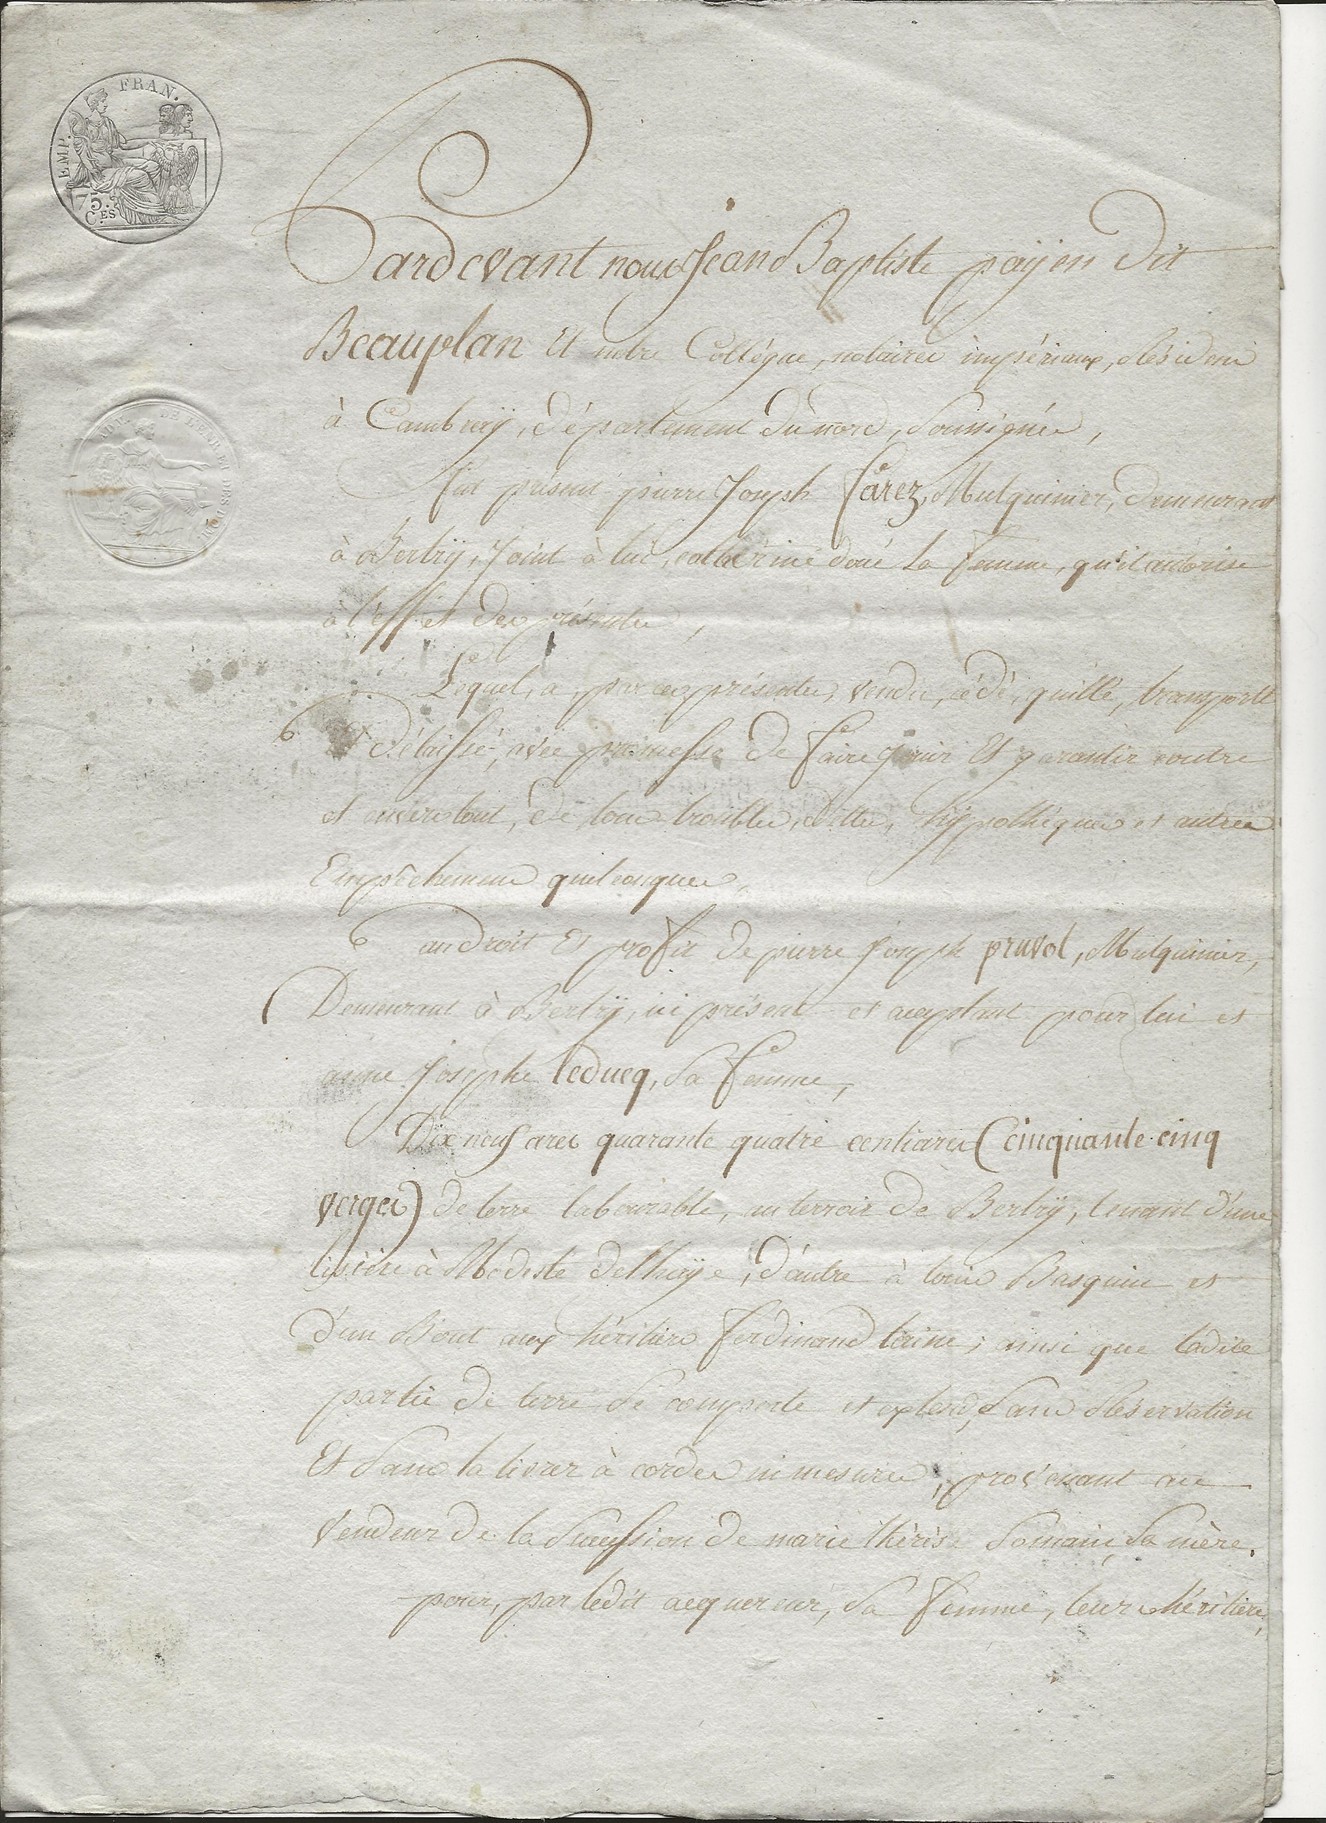 EMP. FRAN.
75. C.ES
Pardevant nous Jean Baptiste paÿen Dit
Beauplan Et notre Collégue, notaires impériaux, Résidens
à Cambraÿ, département du nord, Soussignés,
fut présent pierre Joseph farez, Mulquinier, demeurant
à Bertrÿ, Joint à lui catherine doué Sa femme, qu'il autorise
à l'effet des présentes,
Lequel, a, par ces présentes, vendu, cédé, quitté, transporté
Et Délaissé, avec promesse de faire Jouir Et garantir contre
et envers tout, de tous troubles, dettes, hÿpothéques et autres
Empêchemens quelconques,
au droit Et profit de pierre Joseph pruvot, Mulquinier,
Demeurant à Bertrÿ, ici présent et acceptant pour lui et
anne Josephe leducq, sa femme,
Dix neuf ares quarante quatre centiares (cinquante cinq
verges) de terre labourable, au terroir de Bertrÿ, tenant d'une
lisière à Modeste delhaÿe, d'autre à louis Basquin et
d'un Bout aux héritiers ferdinand laine; ainsi que ladite
partie de terre se comporte et s'etend, Sans Réservation
Et Sans la livrer à cordes ni mesures, provenant au
vendeur de la Succession de marie thérèse Somain, Sa mère.
pour, par ledit acquereur, Sa femme, leurs héritiers,